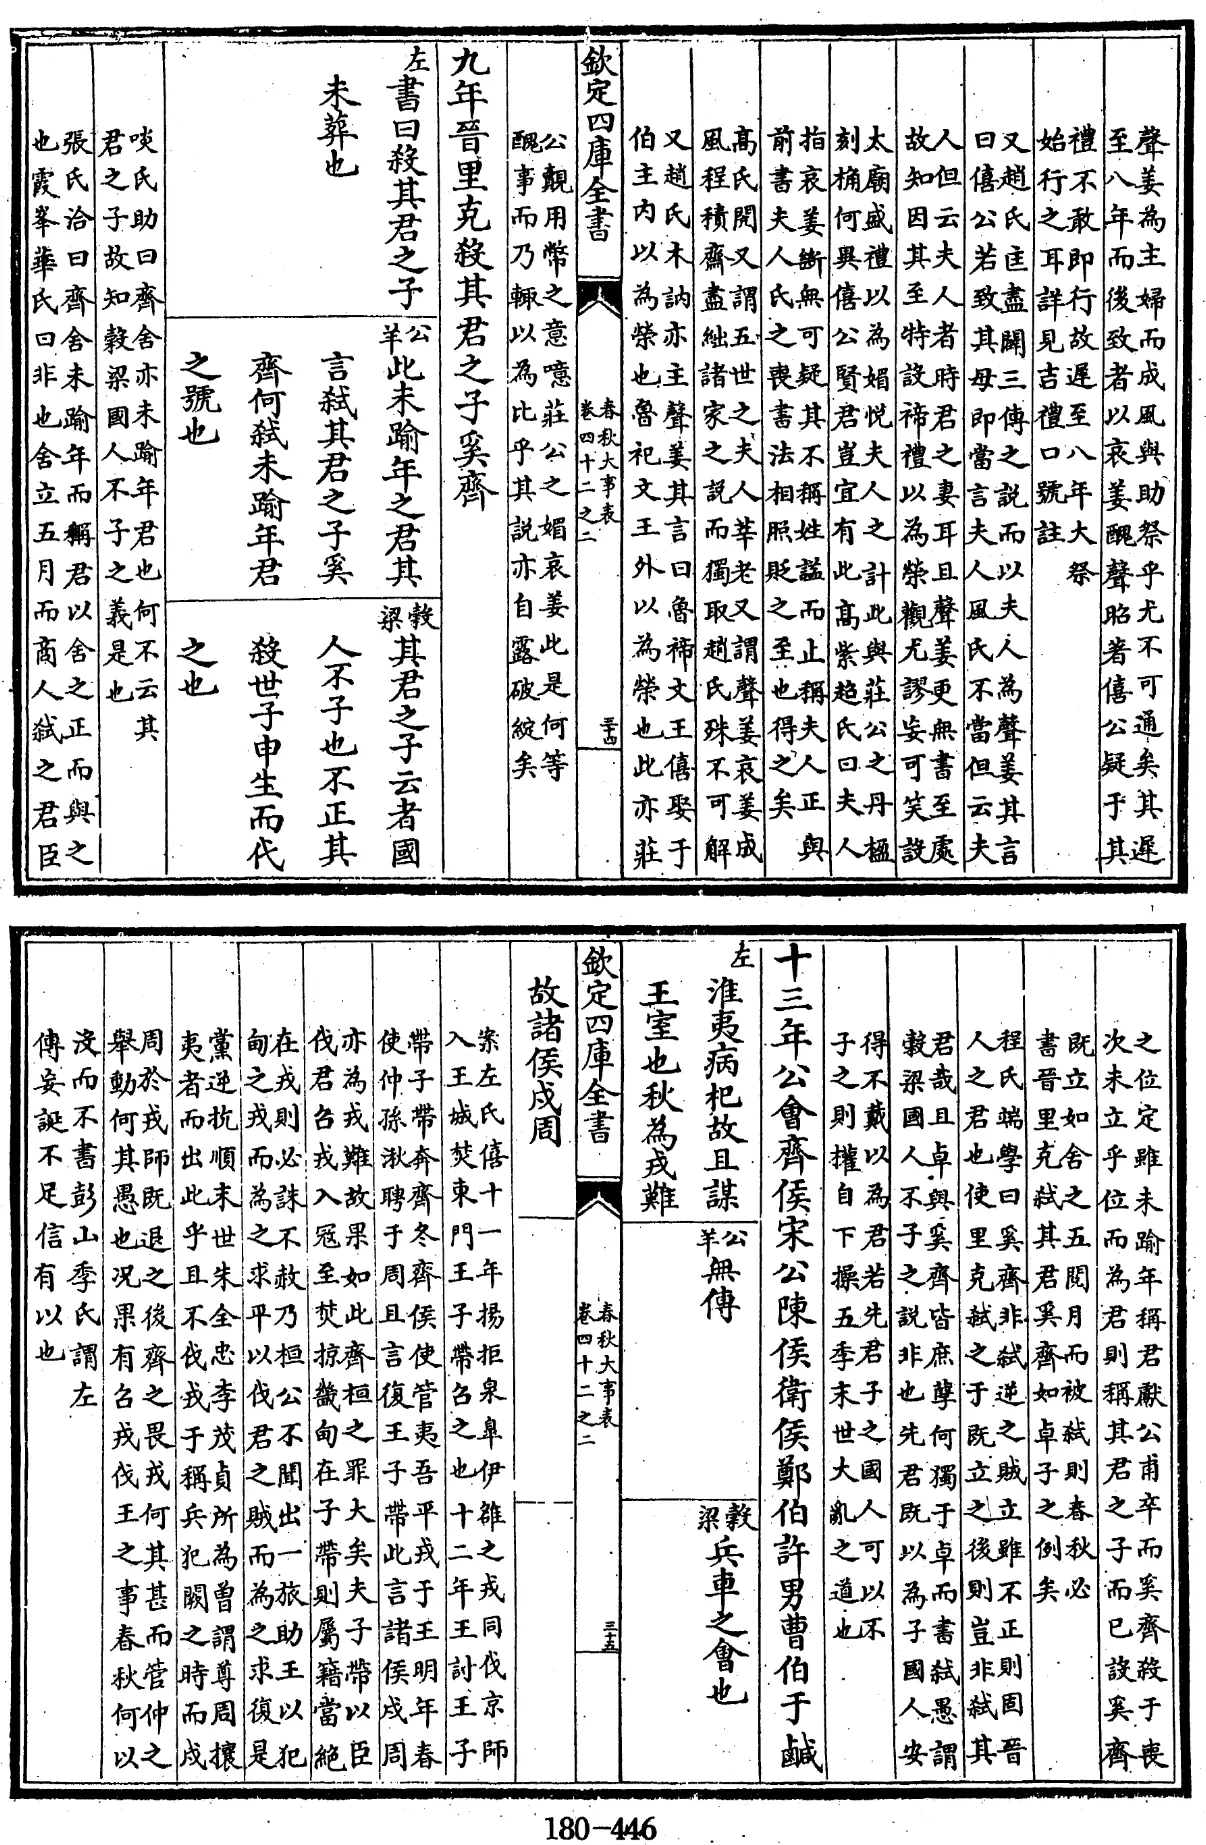 聲姜為主婦而成風與助祭乎尤不可通矣其遲
至八年而後致者以哀姜醜聲昭著僖公疑于其
禮不敢即行故遲至八年大祭
始行之耳詳見吉禮口號註
又趙氏匡盡闢三傳之説而以夫人為聲姜其言
曰僖公若致其母即當言夫人風氏不當但云夫
人但云夫人者時君之妻耳且聲姜更無書至處
故知因其至特設禘禮以為榮觀尤謬妄可笑設
太廟盛禮以為媚悦夫人之計此與莊公之丹楹
刻桷何異僖公賢君豈宜有此高紫超氏曰夫人
指哀姜斷無可疑其不稱姓諡而止稱夫人正與
前書夫人氏之喪書法相照貶之至也得之矣
高氏閌又謂五世之夫人莘老又謂聲姜哀姜成
風程積齋盡絀諸家之説而獨取趙氏殊不可解
又趙氏木訥亦主聲姜其言曰魯禘文王僖娶于
伯主内以為榮也魯祀文王外以為榮也此亦莊
欽定四庫全書
春秋大事表
卷四十二之二
三十四
公覿用幣之意噫莊公之媚哀姜此是何等
醜事而乃輙以為比乎其説亦自露破綻矣
九年晉里克殺其君之子奚齊
左
書曰殺其君之子
未葬也
公羊
此未踰年之君其
言弑其君之子奚
齊何弑未踰年君
之號也
穀梁
其君之子云者國
人不子也不正其
殺世子申生而代
之也
啖氏助曰齊舍亦未踰年君也何不云其
君之子故知穀梁國人不子之義是也
張氏洽曰齊舍未踰年而稱君以舍之正而與之
也霞峯華氏曰非也舍立五月而商人弑之君臣
之位定雖未踰年稱君獻公甫卒而奚齊殺于喪
次未立乎位而為君則稱其君之子而已設奚齊
既立如舍之五閲月而被弑則春秋必
書晉里克弑其君奚齊如卓子之例矣
程氏端學曰奚齊非弑逆之賊立雖不正則固晉
人之君也使里克弑之于既立之後則豈非弑其
君哉且卓與奚齊皆庶孽何獨于卓而書弑愚謂
穀梁國人不子之説非也先君既以為子國人安
得不戴以為君若先君子之國人可以不
子之則權自下操五季末世大亂之道也
十三年公會齊侯宋公陳侯衛侯鄭伯許男曹伯于鹹
左
淮夷病杞故且謀
王室也秋為戎難
公羊
無傳
穀梁
兵車之會也
欽定四庫全書
春秋大事表
卷四十二之二
三十五
故諸侯戍周
案左氏僖十一年揚拒泉臯伊雒之戎同伐京師
入王城焚東門王子帶召之也十二年王討王子
帶子帶奔齊冬齊侯使管夷吾平戎于王明年春
使仲孫湫聘于周且言復王子帶此言諸侯戍周
亦為戎難故果如此齊桓之罪大矣夫子帶以臣
伐君召戎入冦至焚掠畿甸在子帶則屬籍當絶
在戎則必誅不赦乃桓公不聞出一旅助王以犯
甸之戎而為之求平以伐君之賊而為之求復是
黨逆抗順末世朱全忠李茂貞所為曾謂尊周攘
夷者而出此乎且不伐戎于稱兵犯闕之時而戍
周於戎師既退之後齊之畏戎何其甚而管仲之
舉動何其愚也况果有召戎伐王之事春秋何以
沒而不書彭山季氏謂左
傳妄誕不足信有以也
180-446